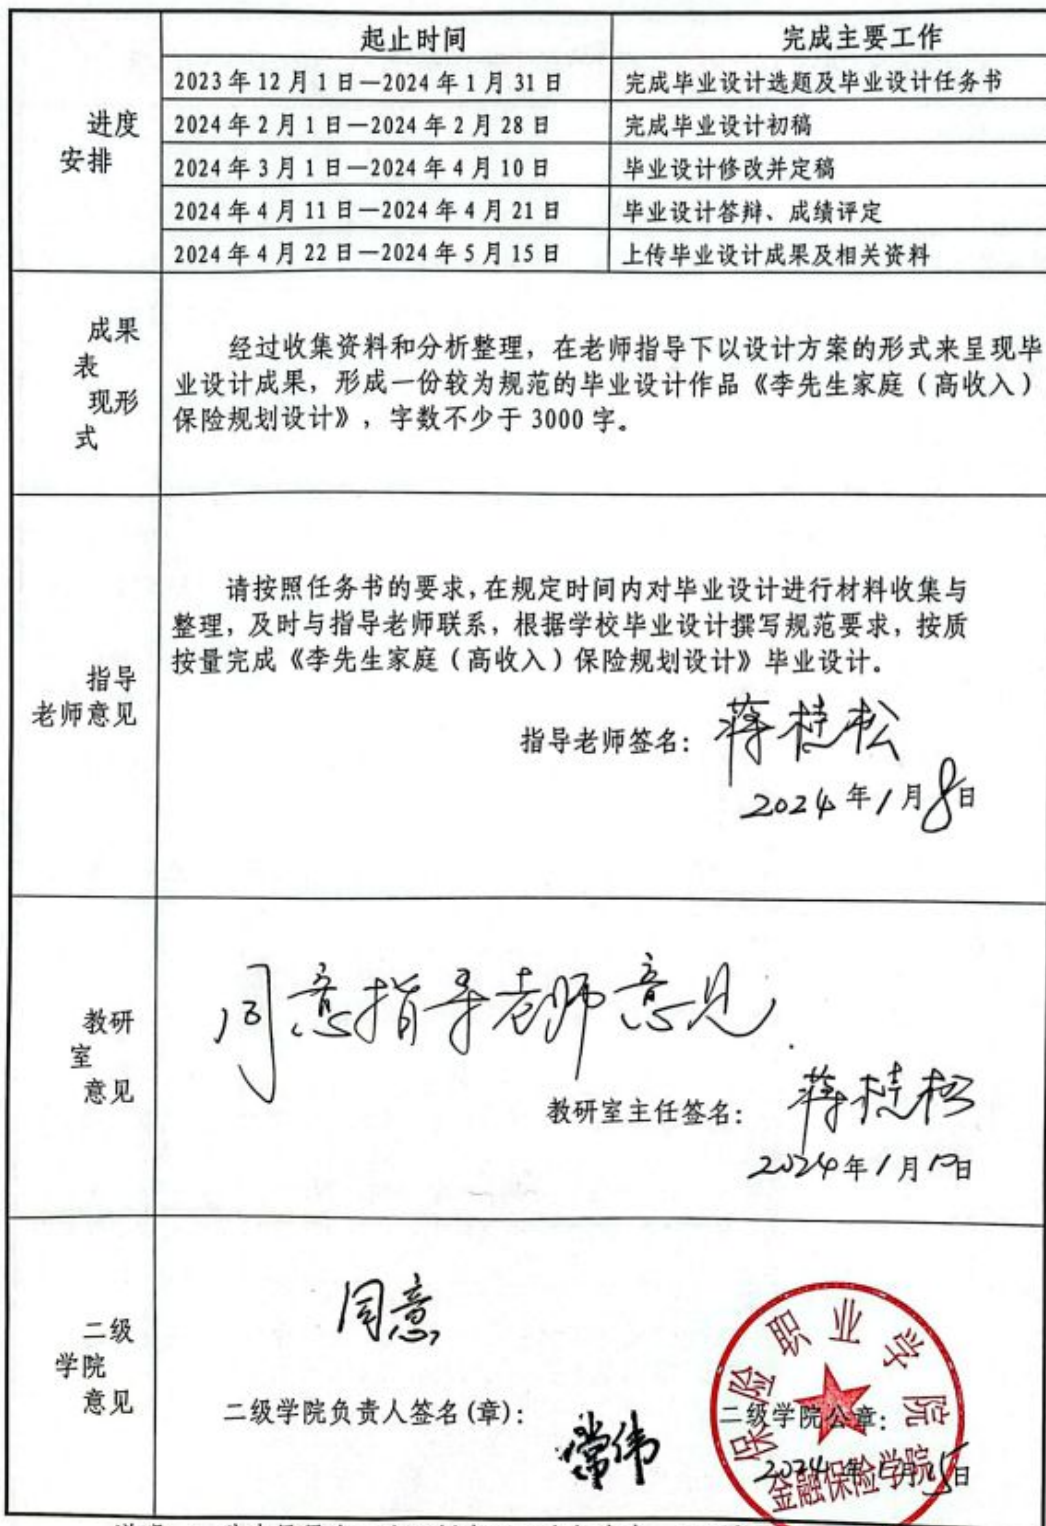 起止时间 完成主要工作
进度
安排
2023年12月1日—2024年1月31日 完成毕业设计选题及毕业设计任务书
2024年2月1日—2024年2月28日 完成毕业设计初稿
2024年3月1日—2024年4月10日 毕业设计修改并定稿
2024年4月11日—2024年4月21日 毕业设计答辩、成绩评定
2024年4月22日—2024年5月15日 上传毕业设计成果及相关资料
成果
表
现形
式
经过收集资料和分析整理，在老师指导下以设计方案的形式来呈现毕
业设计成果，形成一份较为规范的毕业设计作品《李先生家庭（高收入）
保险规划设计》，字数不少于3000字。
指导
老师意见
请按照任务书的要求,在规定时间内对毕业设计进行材料收集与
整理，及时与指导老师联系，根据学校毕业设计撰写规范要求，按质
按量完成《李先生家庭（高收入）保险规划设计》毕业设计。
指导老师签名：蒋桂松
2024年1月8日
教研
室
意见
同意指导老师意见.
教研室主任签名：蒋桂松
2024年1月10日
二级
学院
意见
同意
二级学院负责人签名(章)：常伟
二级学院公章：
2024年1月15日
保险职业学院
金融保险学院